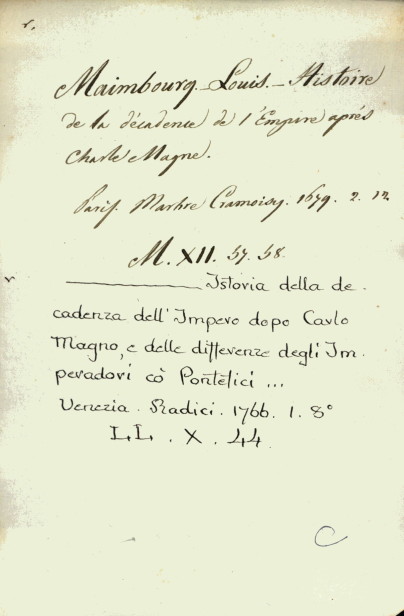 Maimbourg. Louis. Histoire
de la décadence de l'Empire aprés
Charle Magne.
Parif. Marbre Cramoisy. 1679. 2. 12.
M. XII. 57. 58.
Istoria della de-
cadenza dell'Impero dopo Carlo
Magno, e delle differenze degli Im-
peradori cò Pontefici ...
Venezia. Radici. 1766. 1. 8°
LL. X. 44.
C